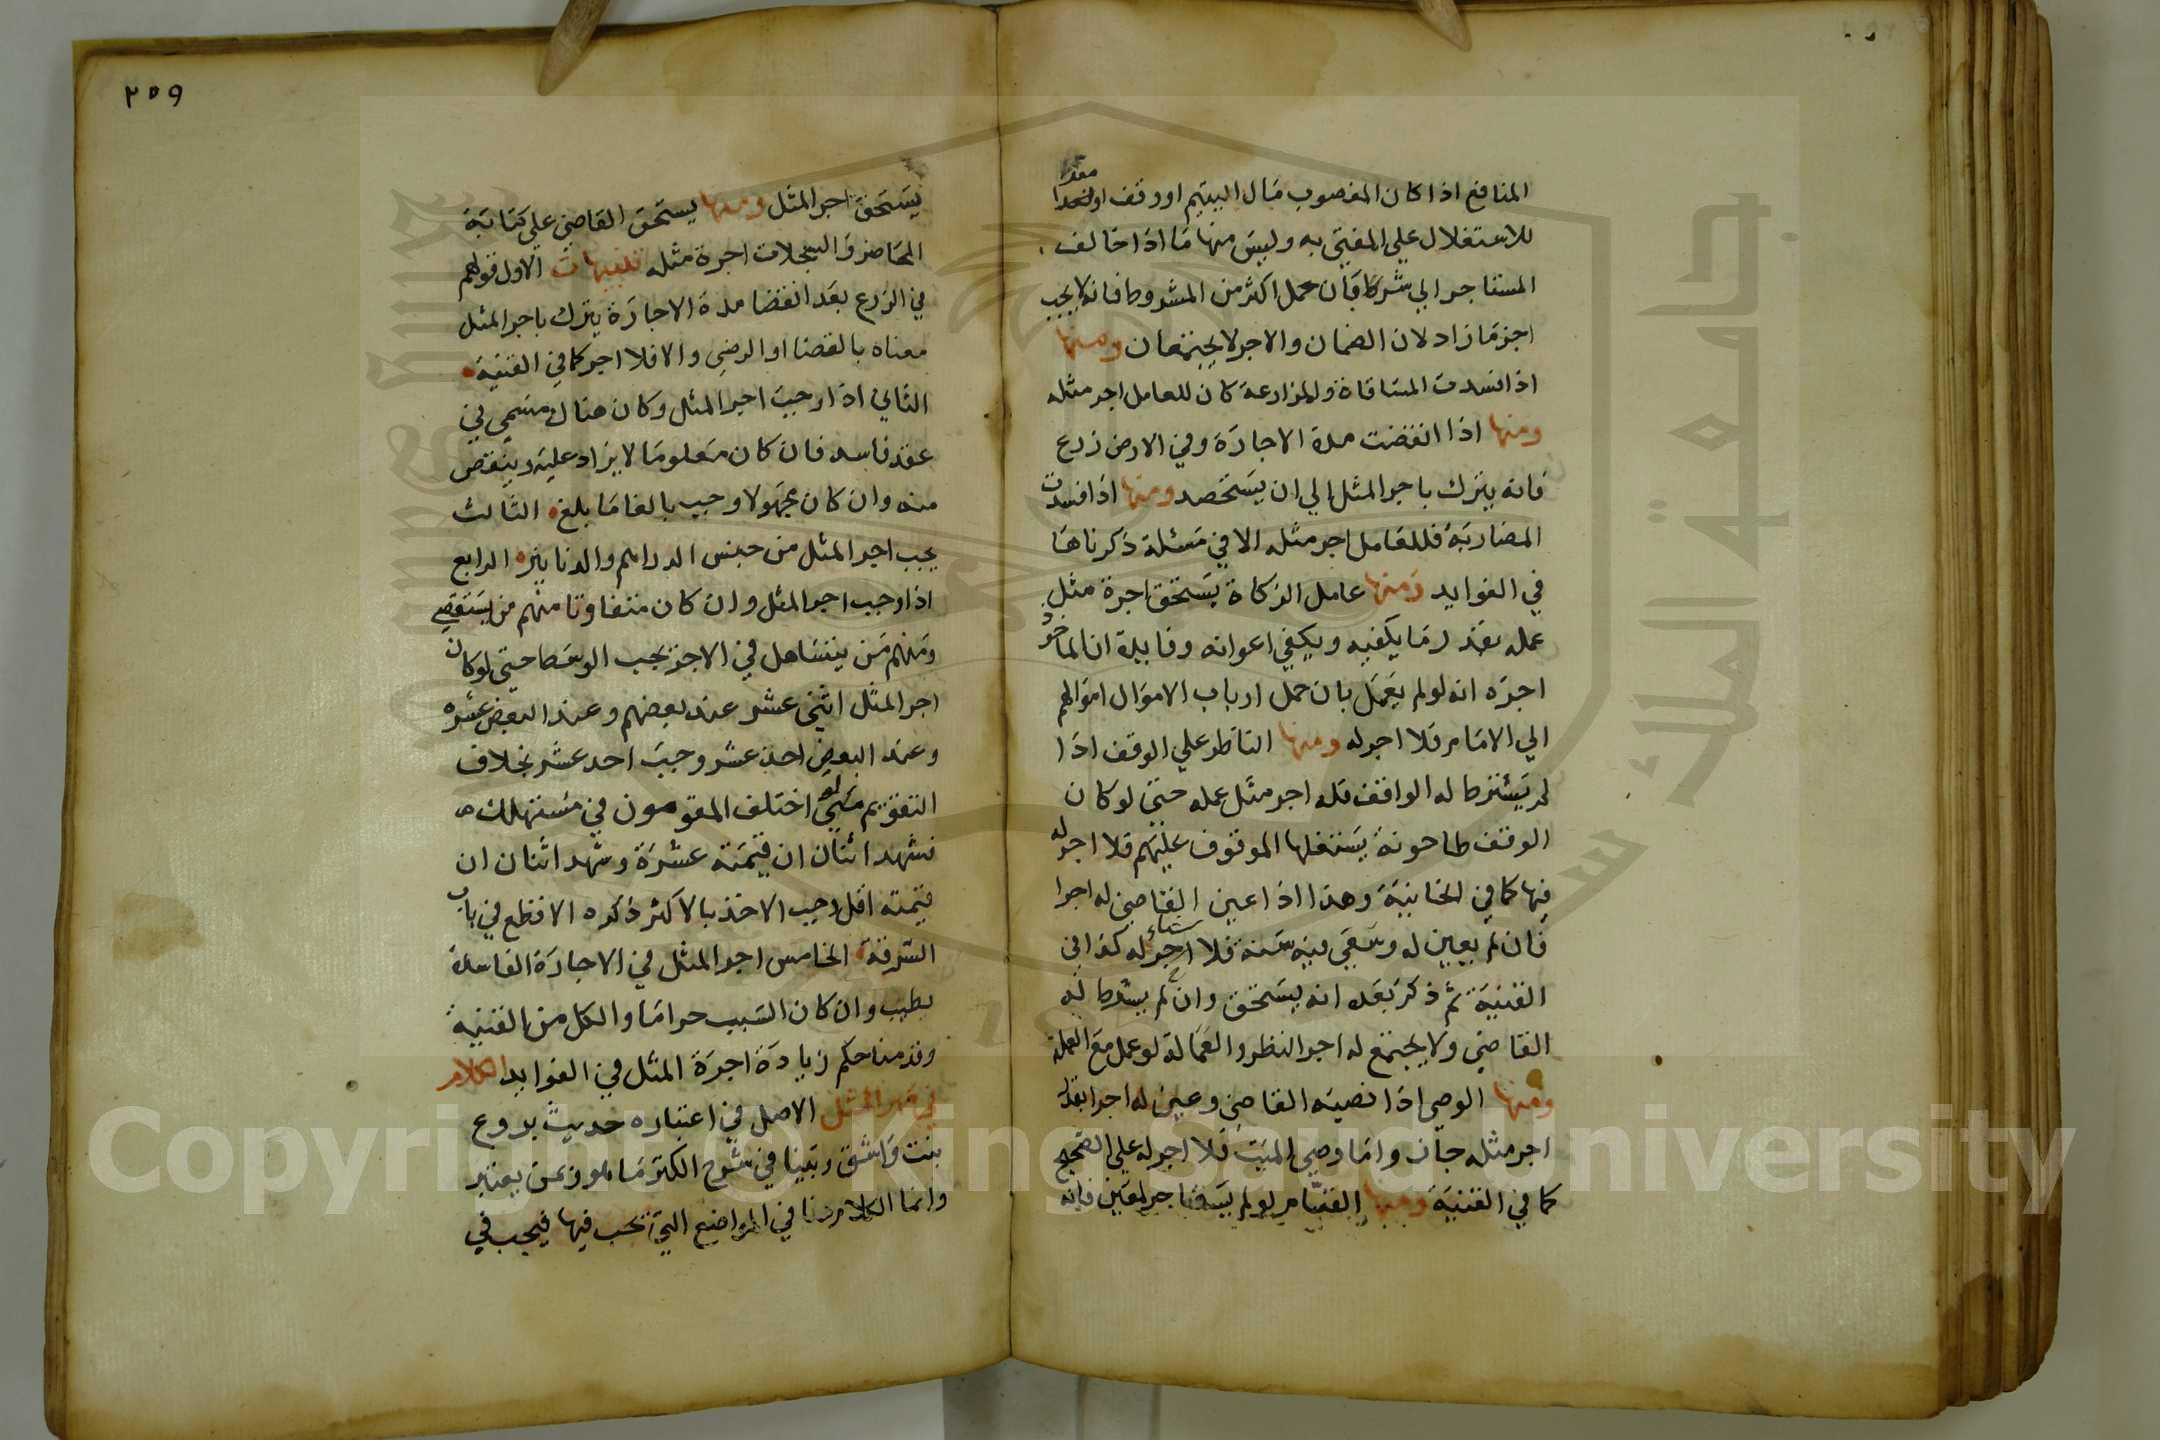 المنافع اذا كان المغصوب مال اليتيم او وقف او معدا
للاستغلال علي المفتي به وليس منها ما اذا خالف
المستاجر الي شركا بان حمل اكثر من المشروط فانه لا يجب
اجر ما زاد لان الضمان والاجر لا يجتمعان ومنها
اذا فسدت المساقاة والمزارعة كان للعامل اجر مثله
ومنها اذا انقضت مدة الاجارة وفي الارض زرع
فانه يترك باجر المثل الي ان يستحصد ومنها اذا فسدت
المضاربة فللعامل اجر مثله الا في مسئلة ذكرناها
في الفوايد ومنها عامل الزكاة يستحق اجرة مثل
عمله بقدر ما يكفيه ويكفي اعوانه وفايدة ان الماخوذ
اجره انه لو لم يعمل بان حمل ارباب الاموال اموالهم
الي الامام فلا اجر له ومنها الناظر علي الوقف اذا
لم يشترط له الواقف فله اجر مثل عمله حتي لو كان
الوقف طاحونة يستغلها الموقوف عليهم فلا اجر له
فيها كما في الخانية وهذا اذا عين القاضي له اجرا
فان لم يعين له وسعي فيه سنة فلا شئ له كذا في
القنية ثم ذكر بعد انه يستحق وان لم يشرط له
القاضي ولا يجتمع له اجر النظر والعمالة لو عمل مع العملة
ومنها الوصي اذا نصبه القاضي وعين له اجرا بقدر
اجر مثله جاز واما وصي الميت فلا اجر له علي الصحيح
كما في القنية ومنها القسام لو لم يستاجر لمعين فانه
٢٥٩
يستحق اجر المثل ومنها يستحق القاضي علي كتابة
المحاضر والسجلات اجرة مثله تنبيهات الاول قولهم
في الزرع بعد انقضا مدة الاجارة يترك باجر المثل
معناه بالقضا او الرضي والا فلا اجر كما في القنية
الثاني اذا وجب اجر المثل وكان هناك مسمي في
عقد فاسد فان كان معلوما لا يزاد عليه وينقص
منه وان كان مجهولا وجب بالغا ما بلغ الثالث
يجب اجر المثل من جنس الدراهم والدنانير الرابع
اذا وجب اجر المثل وان كان متفاوتا منهم من يستقصي
ومنهم من يتساهل في الاجر يجب الوسط حتي لو كان
اجر المثل اثني عشر عند بعضهم وعند البعض عشره
وعند البعض احد عشر وجب احد عشر بخلاف
التقويم لو اختلف المقومون في مستهلك
فشهد اثنان ان قيمته عشرة وشهد اثنان ان
قيمته اقل وجب الاخذ بالاكثر ذكره الاقطع في باب
السرقة الخامس اجر المثل في الاجارة الفاسدة
يطيب وان كان السبب حراما والكل من القنية
وقدمنا حكم زيادة اجرة المثل في الفوايد الكلام
في مهر المثل الاصل في اعتباره حديث بروع
بنت واشق وبينا في شرح الكنز ما هو وبمن يعتبر
وانما الكلام هنا في المواضع التي تجب فيها فيجب في